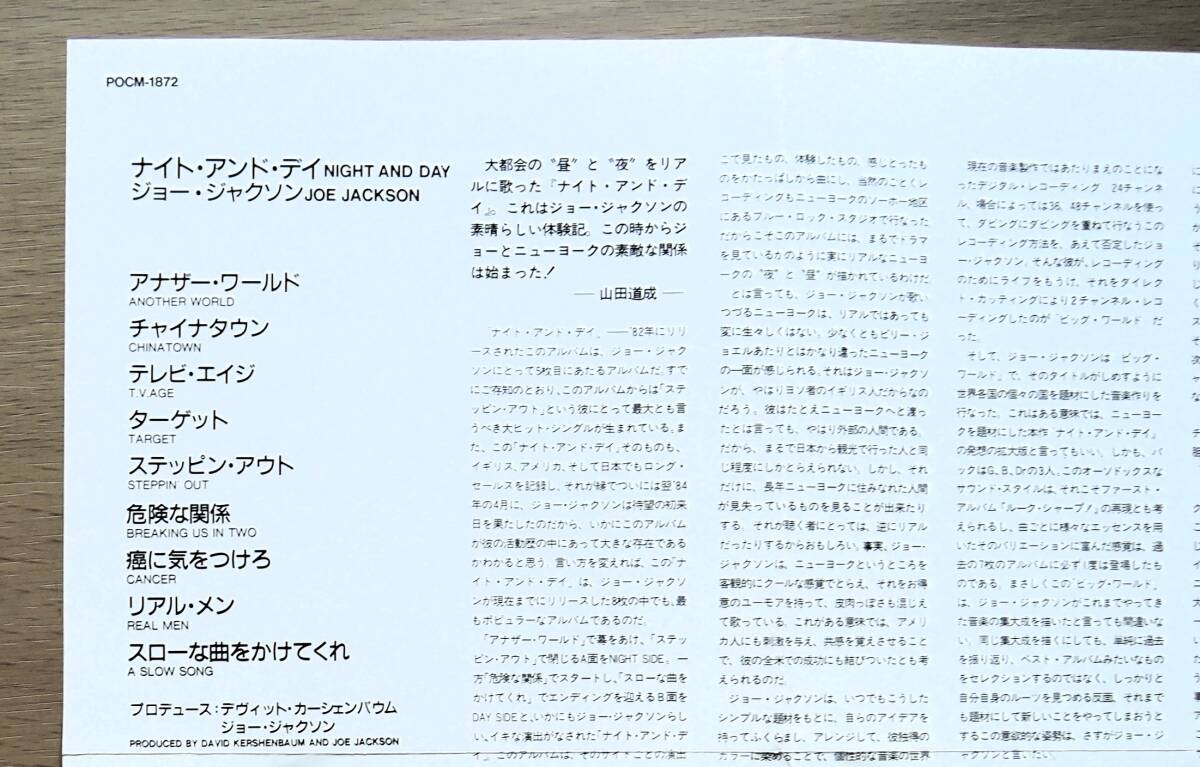 POCM-1872
ナイト・アンド・デイ NIGHT AND DAY
ジョー・ジャクソン JOE JACKSON
アナザー・ワールド
ANOTHER WORLD
チャイナタウン
CHINATOWN
テレビ・エイジ
T.V.AGE
ターゲット
TARGET
ステッピン・アウト
STEPPIN' OUT
危険な関係
BREAKING US IN TWO
癌に気をつけろ
CANCER
リアル・メン
REAL MEN
スローな曲をかけてくれ
A SLOW SONG
プロデュース：デヴィット・カーシェンバウム
ジョー・ジャクソン
PRODUCED BY DAVID KERSHENBAUM AND JOE JACKSON
大都会の〝昼〟と〝夜〟をリア
ルに歌った『ナイト・アンド・デ
イ』。これはジョー・ジャクソンの
素晴らしい体験記。この時からジ
ョーとニューヨークの素敵な関係
は始まった！
── 山田道成 ──
ナイト・アンド・デイ」──'82年にリリ
ースされたこのアルバムは、ジョー・ジャク
ソンにとって5枚目にあたるアルバムだ。すで
にご存知のとおり、このアルバムからは「ステ
ッピン・アウト」という彼にとって最大とも言
うべき大ヒット・シングルが生まれている。ま
た、この「ナイト・アンド・デイ」そのものも、
イギリス、アメリカ、そして日本でもロング・
セールスを記録し、それが縁でついには翌'84
年の4月に、ジョー・ジャクソンは待望の初来
日を果たしたのだから、いかにこのアルバム
が彼の活動歴の中にあって大きな存在である
かわかると思う。言い方を変えれば、この「ナ
イト・アンド・デイ」は、ジョー・ジャクソ
ンが現在までにリリースした8枚の中でも、最
もポピュラーなアルバムであるのだ。
「アナザー・ワールド」で幕をあけ、「ステッ
ピン・アウト」で閉じるA面をNIGHT SIDE。一
方「危険な関係」でスタートし、「スローな曲を
かけてくれ」でエンディングを迎えるB面を
DAY SIDEと、いかにもジョー・ジャクソンらし
い、イキな演出がなされた「ナイト・アンド・デ
イ」。このアルバムは、そのサイドごとの演出
こで見たもの、体験したもの、感じとったも
のをかたっぱしから曲にし、当然のごとくレ
コーディングもニューヨークのソーホー地区
にあるブルー・ロック・スタジオで行なった
だからこそこのアルバムには、まるでドラマ
を見ているかのように実にリアルなニューヨ
ークの〝夜〟と〝昼〟が描かれているわけだ
とは言っても、ジョー・ジャクソンが歌い
つづるニューヨークは、リアルではあっても
変に生々しくはない。少なくともビリー・ジ
ョエルあたりとはかなり違ったニューヨーク
の一面が感じられる。それはジョー・ジャクソ
ンが、やはりヨソ者のイギリス人だからなの
だろう。彼はたとえニューヨークへと渡っ
たとは言っても、やはり外部の人間である。
だから、まるで日本から観光で行った人と同
じ程度にしかとらえられない。しかし、それ
だけに、長年ニューヨークに住みなれた人間
が見失っているものを見ることが出来たり
する。それが聴く者にとっては、逆にリアル
だったりするからおもしろい。事実、ジョー・
ジャクソンは、ニューヨークというところを
客観的にクールな感覚でとらえ、それをお得
意のユーモアを持って、皮肉っぽさも混じえ
て歌っている。これがある意味では、アメリ
カ人にも刺激を与え、共感を覚えさせること
で、彼の全米での成功にも結びついたとも考
えられるのだ。
ジョー・ジャクソンは、いつでもこうした
シンプルな題材をもとに、自らのアイデアを
持ってふくらまし、アレンジして、彼独得の
カラーに染めることで、個性的な音楽の世界
現在の音楽製作ではあたりまえのことにな
ったデジタル・レコーディング 24チャンネ
ル、場合によっては36、48チャンネルを使っ
て、ダビングにダビングを重ねて行なうこの
レコーディング方法を、あえて否定したジョ
ー・ジャクソン。そんな彼が、レコーディング
のためにライブをもうけ、それをダイレク
ト・カッティングにより2チャンネル・レコ
ーディングしたのが「ビッグ・ワールド」だ
った
そして、ジョー・ジャクソンは「ビッグ・
ワールド」で、そのタイトルがしめすように
世界各国の個々の国を題材にした音楽作りを
行なった。これはある意味では、ニューヨー
クを題材にした本作「ナイト・アンド・デイ」
の発想の拡大版と言ってもいい。しかも、バ
ックはG、B、Drの3人。このオーソドックスな
サウンド・スタイルは、それこそファースト・
アルバム「ルーク・シャープ！」の再現とも考
えられるし、曲ごとに様々なエッセンスを用
いたそのバリエーションに富んだ感覚は、過
去の7枚のアルバムに必ず1度は登場したも
のである。まさしくこの「ビッグ・ワールド」
は、ジョー・ジャクソンがこれまでやってき
た音楽の集大成を描いたと言っても間違いな
い。同じ集大成を描くにしても、単純に過去
を振り返り、ベスト・アルバムみたいなもの
をセレクションするのではなく、しっかりと
自分自身のルーツを見つめる反面、それまで
も題材にして新しいことをやってしまおうと
するこの意欲的な姿勢は、さすがジョー・ジ
ャクソンと言いたい。